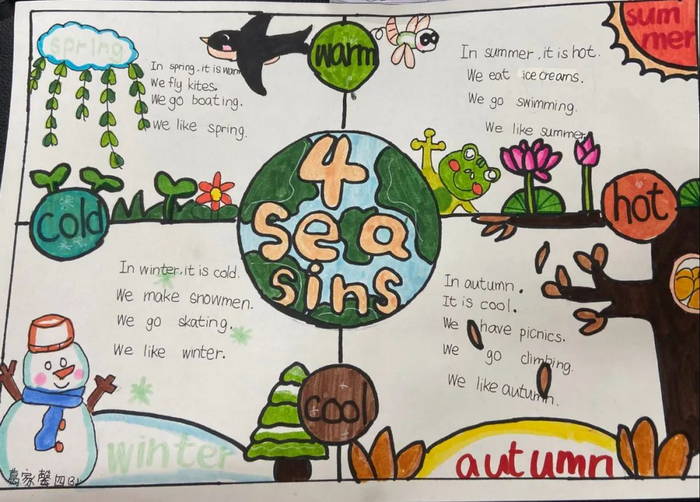 spring
In spring, it is warm
We fly kites.
We go boating.
We like spring.
warm
In summer, it is hot.
We eat ice creams.
We go swimming.
We like summer
sum
mer
cold
4
Sea
sins
hot
In winter, it is cold.
We make snowmen.
We go skating.
We like winter.
In autumn.
It is cool.
We have picnics.
We go climbing.
We like autumn.
cool
winter
autumn
家馨 四